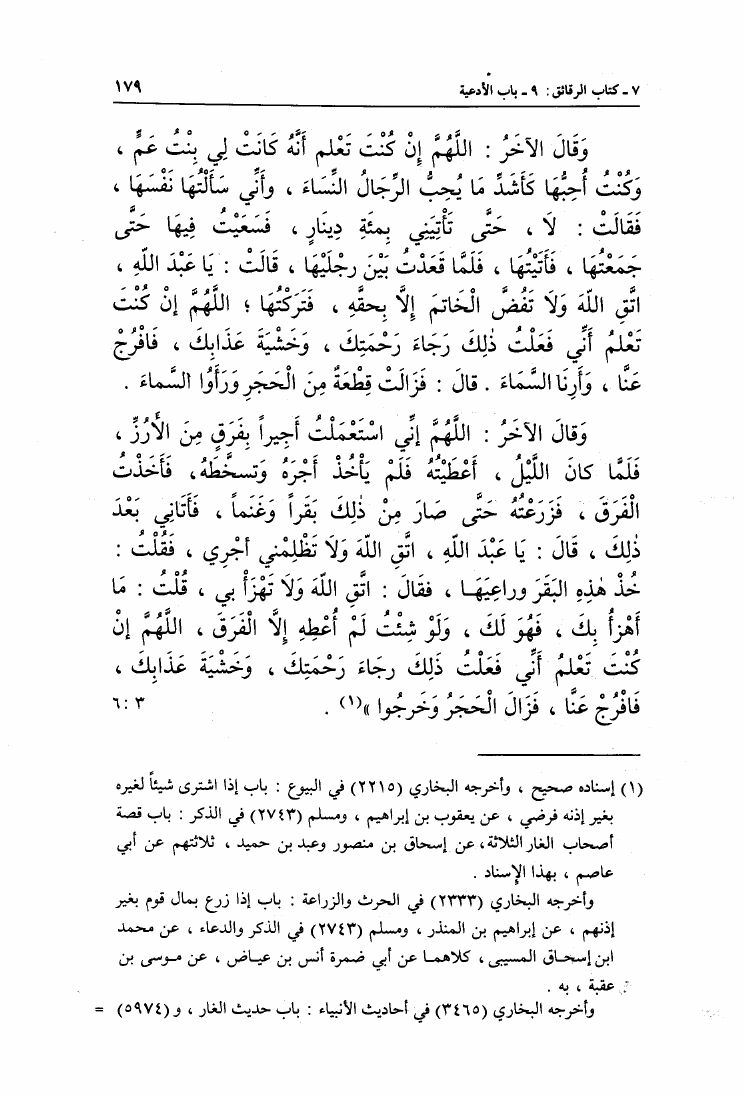 ٧ - كتاب الرقائق : ٩ - باب الأدعية ١٧٩
وَقَالَ الآخَرُ : اللَّهُمَّ إِنْ كُنْتَ تَعْلم أَنَّهُ كَانَتْ لِي بِنْتُ عَمٍّ ،
وَكُنْتُ أُحِبُّهَا كَأَشَدِّ مَا يُحِبُّ الرِّجَالُ النِّسَاءَ ، وأَنِّي سَأَلْتُهَا نَفْسَهَا ،
فَقَالَتْ : لَا ، حَتَّى تَأْتِيَنِي بِمِئَةِ دِينَارٍ ، فَسَعَيْتُ فِيهَا حَتَّى
جَمَعْتُهَا ، فَأَتَيْتُهَا ، فَلَمَّا قَعَدْتُ بَيْنَ رِجْلَيْهَا ، قَالَتْ : يَا عَبْدَ اللهِ ،
اتَّقِ اللهَ وَلَا تَفُضَّ الْخَاتمَ إِلَّا بِحقِّهِ ، فَتَرَكْتُهَا ؛ اللَّهُمَّ إِنْ كُنْتَ
تَعْلَمُ أَنِّي فَعَلْتُ ذٰلِكَ رَجَاءَ رَحْمَتِكَ ، وَخَشْيَةَ عَذَابِكَ ، فَافْرُجْ
عَنَّا ، وَأَرِنَا السَّمَاءَ . قالَ : فَزَالَتْ قِطْعَةٌ مِنَ الْحَجَرِ وَرَأَوُا السَّماءَ .
وَقالَ الآخَرُ : اللَّهُمَّ إِنِّي اسْتَعْمَلْتُ أَجِيراً بِفَرَقٍ مِنَ الأَرُزِّ ،
فَلَمَّا كانَ اللَّيْلُ ، أَعْطَيْتُهُ فَلَمْ يَأْخُذْ أَجْرَهُ وَتَسخَّطَهُ، فَأَخَذْتُ
الْفَرَقَ ، فَزَرَعْتُهُ حَتَّى صَارَ مِنْ ذٰلِكَ بَقَراً وَغَنَماً ، فَأَتَانِي بَعْدَ
ذٰلِكَ ، قَالَ : يَا عَبْدَ اللهِ ، اتَّقِ اللهَ وَلَا تَظْلِمْني أَجْرِي ، فَقُلْتُ :
خُذْ هٰذِهِ البَقَرَ وراعِيَهَا ، فقالَ : اتَّقِ اللهَ وَلَا تَهْزَأْ بي ، قُلْتُ : مَا
أَهْزأُ بِكَ ، فَهُوَ لَكَ ، وَلَوْ شِئْتُ لَمْ أُعْطِهِ إِلَّا الْفَرَقَ ، اللَّهُمَّ إِنْ
كُنْتَ تَعْلَمُ أَنِّي فَعَلْتُ ذَلِكَ رجَاءَ رَحْمَتِكَ ، وَخَشْيَةَ عَذَابِكَ ،
فَافْرُجْ عَنَّا ، فَزَالَ الْحَجَرُ وَخَرجُوا »(١) . ٦:٣
(١) إسناده صحيح ، وأخرجه البخاري (٢٢١٥) في البيوع : باب إذا اشترى شيئاً لغيره
بغير إذنه فرضي ، عن يعقوب بن إبراهيم ، ومسلم (٢٧٤٣) في الذكر : باب قصة
أصحاب الغار الثلاثة، عن إسحاق بن منصور وعبد بن حميد ، ثلاثتهم عن أبي
عاصم ، بهذا الإسناد .
وأخرجه البخاري (٢٣٣٣) في الحرث والزراعة : باب إذا زرع بمال قوم بغير
إذنهم ، عن إبراهيم بن المنذر ، ومسلم (٢٧٤٣) في الذكر والدعاء ، عن محمد
ابن إسحاق المسيبى ، كلاهما عن أبي ضمرة أنس بن عياض ، عن موسى بن
عقبة ، به .
وأخرجه البخاري (٣٤٦٥) في أحاديث الأنبياء : باب حديث الغار ، و (٥٩٧٤) =